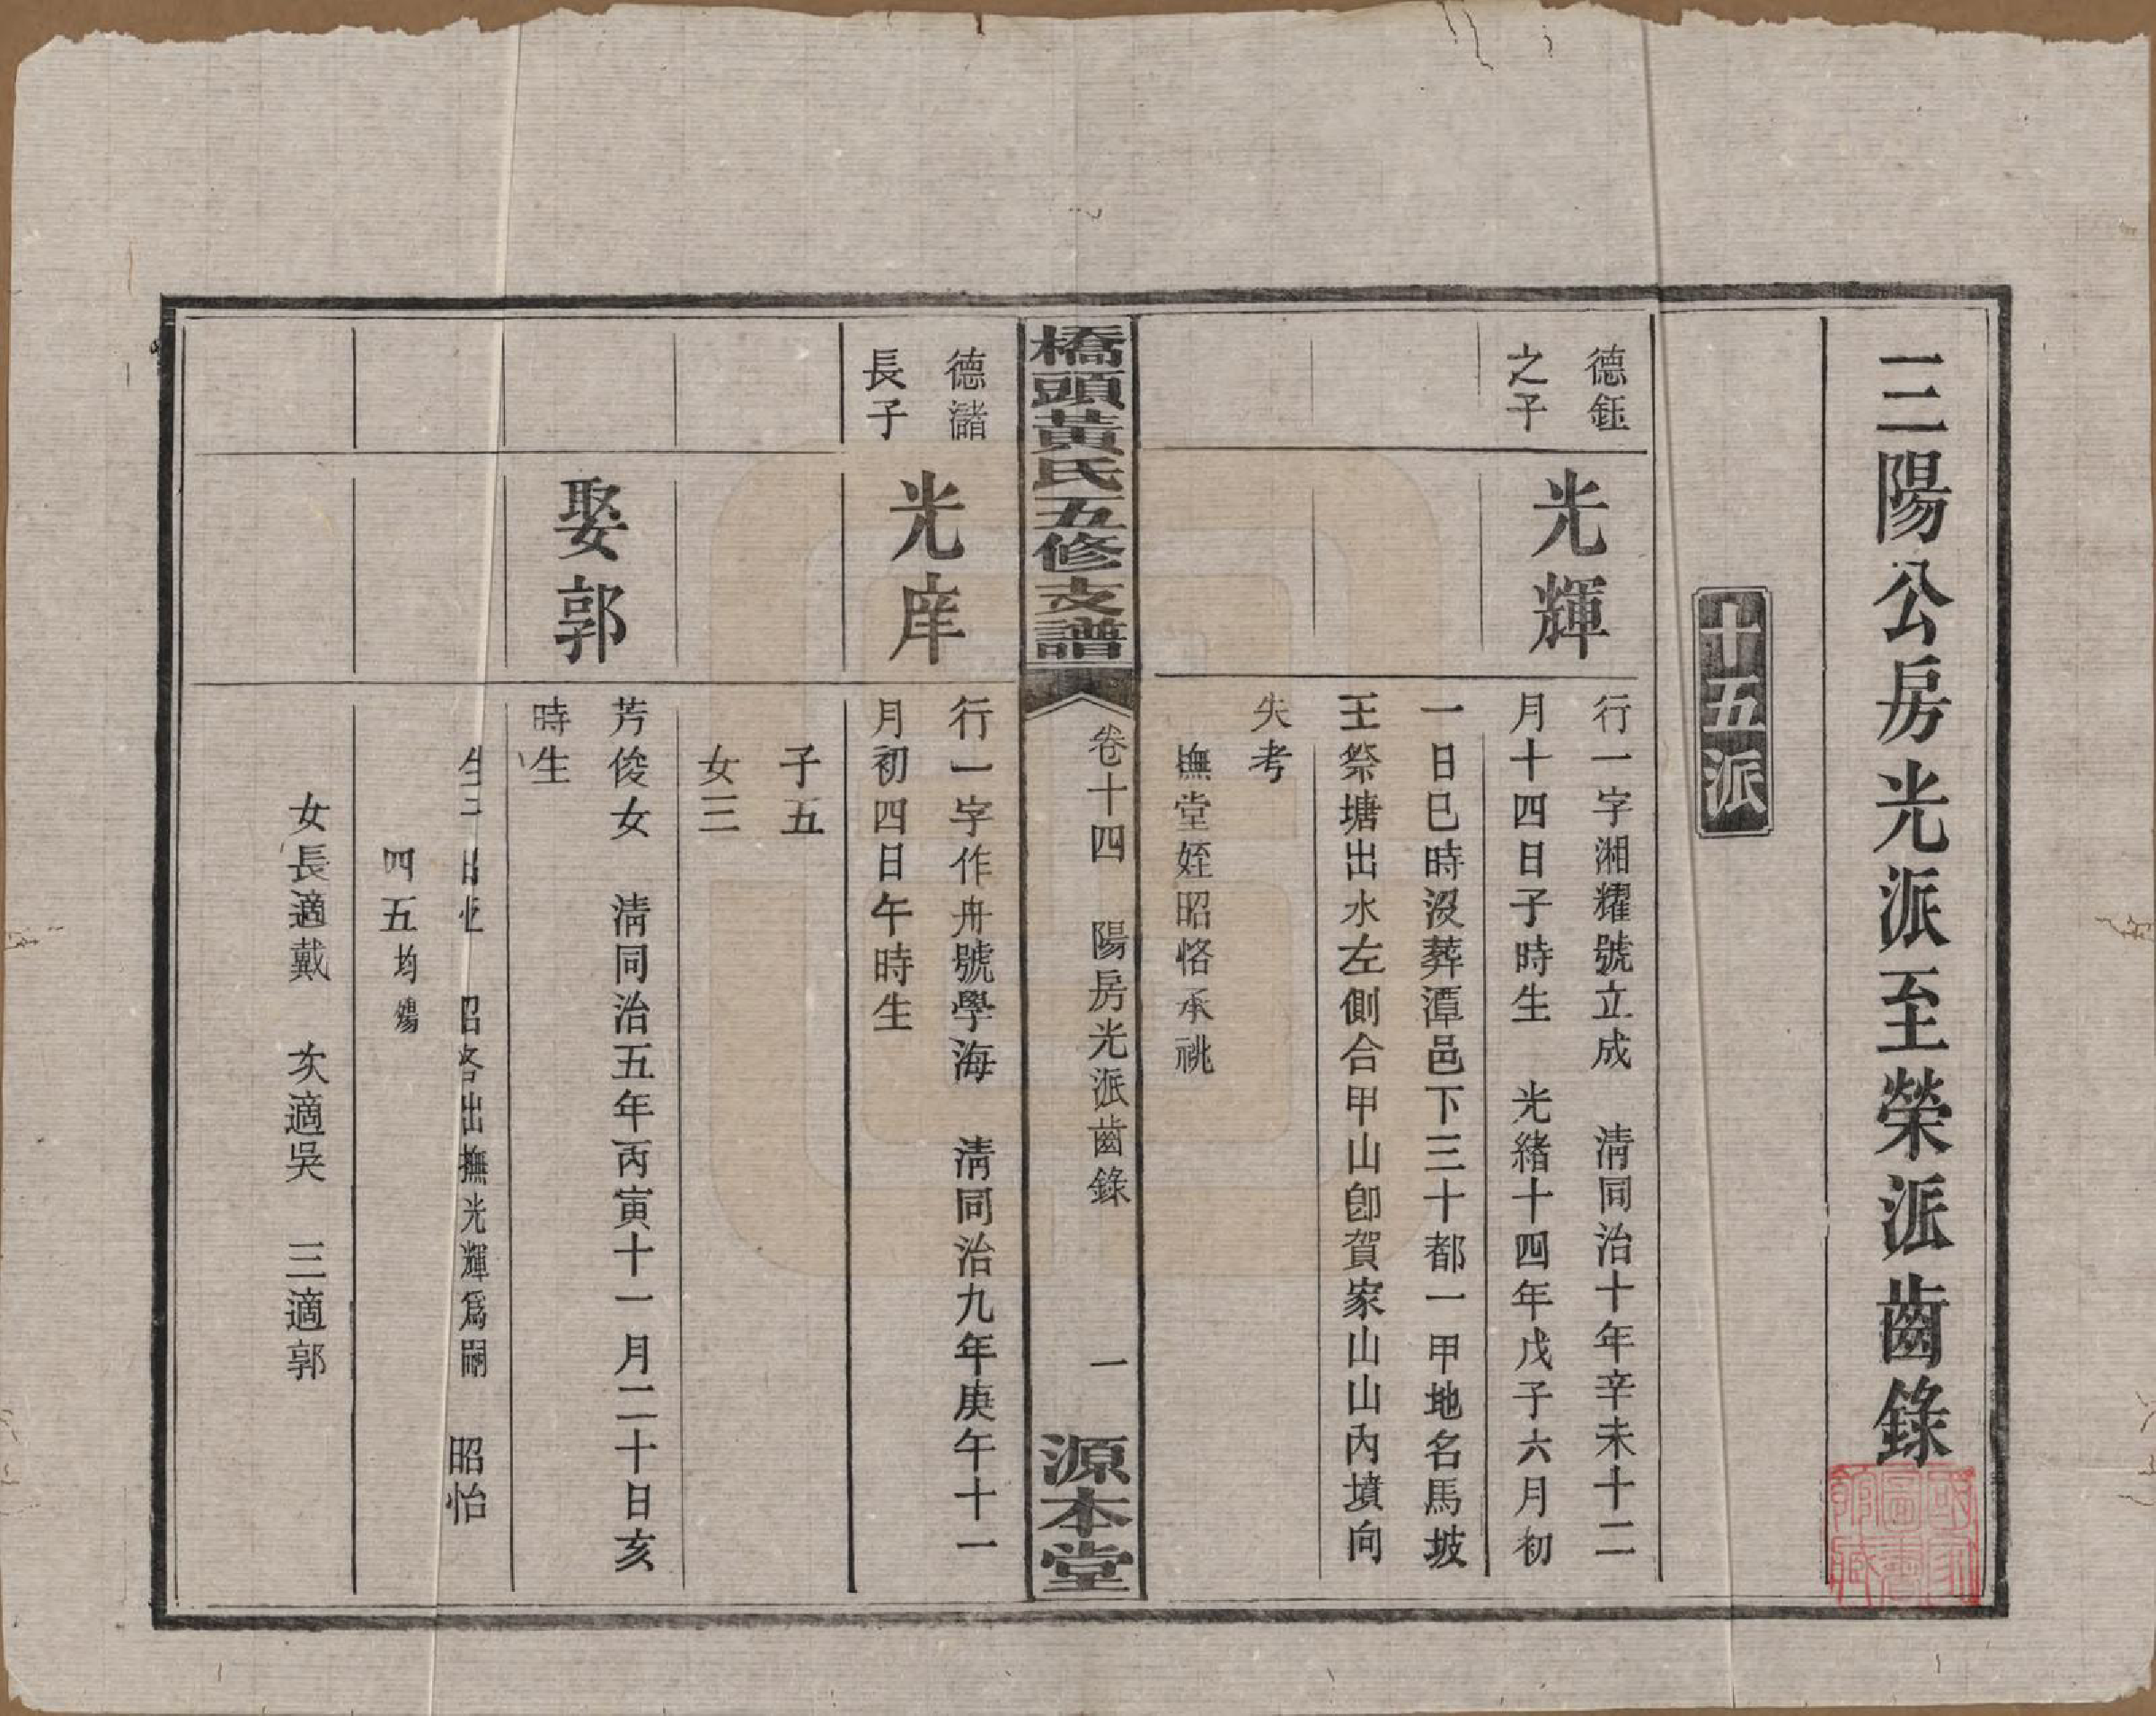 三陽公房光派至榮派齒錄
國家圖書館藏
十五派
德鈺
之子
光輝
行一字湘耀號立成　淸同治十年辛未十二
月十四日子時生　光緒十四年戊子六月初
一日巳時沒葬潭邑下三十都一甲地名馬坡
王祭塘出水左側合甲山卽賀家山山內墳向
失考
撫堂姪昭恪承祧
橋頭黃氏五修支譜
卷十四　陽房光派齒錄
一
源本堂
德瀦
長子
光庠
行一字作舟號學海　淸同治九年庚午十一
月初四日午時生
子五
女三
娶郭
芳俊女　淸同治五年丙寅十一月二十日亥
時生
生子　昭恪出撫光輝爲嗣　昭怡
四五均殤
女長適戴　次適吳　三適郭